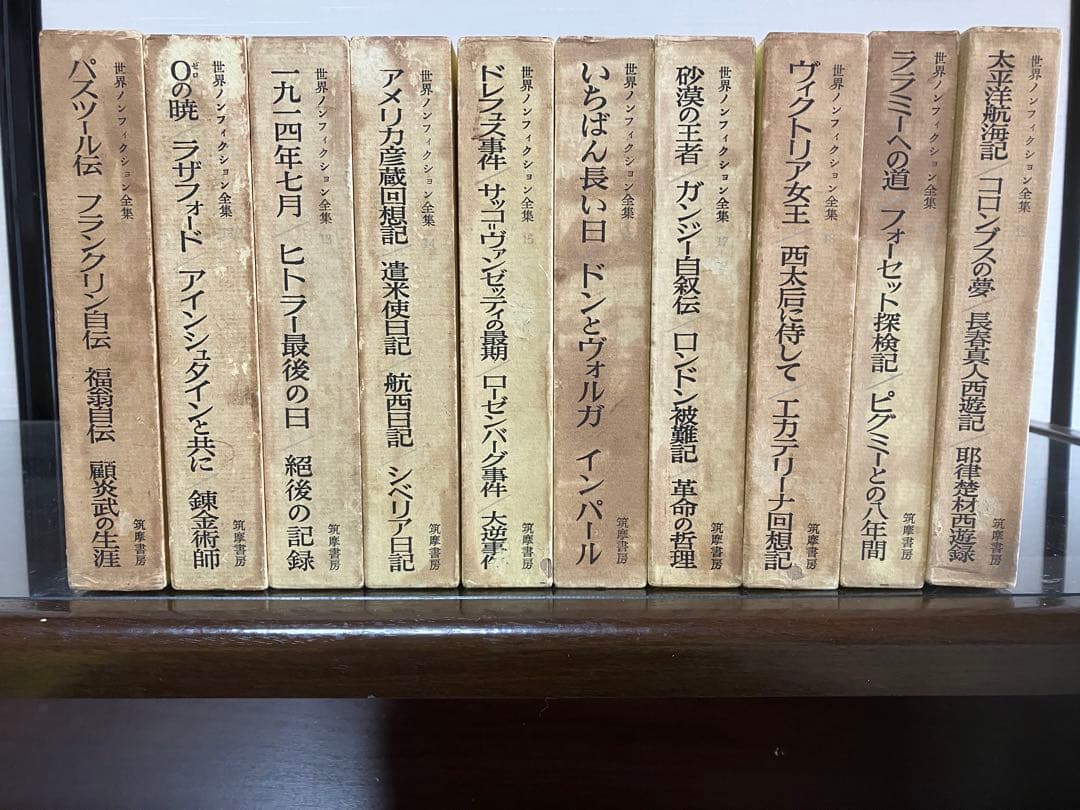 世界ノンフィクション全集
パスツール伝 フランクリン自伝 福翁自伝 顧炎武の生涯
世界ノンフィクション全集 12
0の暁／ラザフォード／アインシュタインと共に／錬金術師
ゼロ
筑摩書房
世界ノンフィクション全集 13
一九一四年七月／ヒトラー最後の日／絕後の記録
筑摩書房
世界ノンフィクション全集 14
アメリカ彦蔵回想記 遣米使日記 航西日記 シベリア日記
筑摩書房
世界ノンフィクション全集 15
ドレフュス事件／サッコ=ヴァンゼッティの最期／ローゼンバーグ事件／大逆事件
筑摩書房
世界ノンフィクション全集
いちばん長い日 ドンとヴォルガ インパール
筑摩書房
世界ノンフィクション全集 17
砂漠の王者／ガンジー自叙伝／ロンドン被難記／革命の哲理
筑摩書房
世界ノンフィクション全集
ヴィクトリア女王 西太后に侍して／エカテリーナ回想記
筑摩書房
世界ノンフィクション全集
ララミーへの道 フォーセット探検記／ピグミーとの八年間
筑摩書房
世界ノンフィクション全集
太平洋航海記／コロンブスの夢／長春真人西遊記／耶律楚材西遊録
筑摩書房